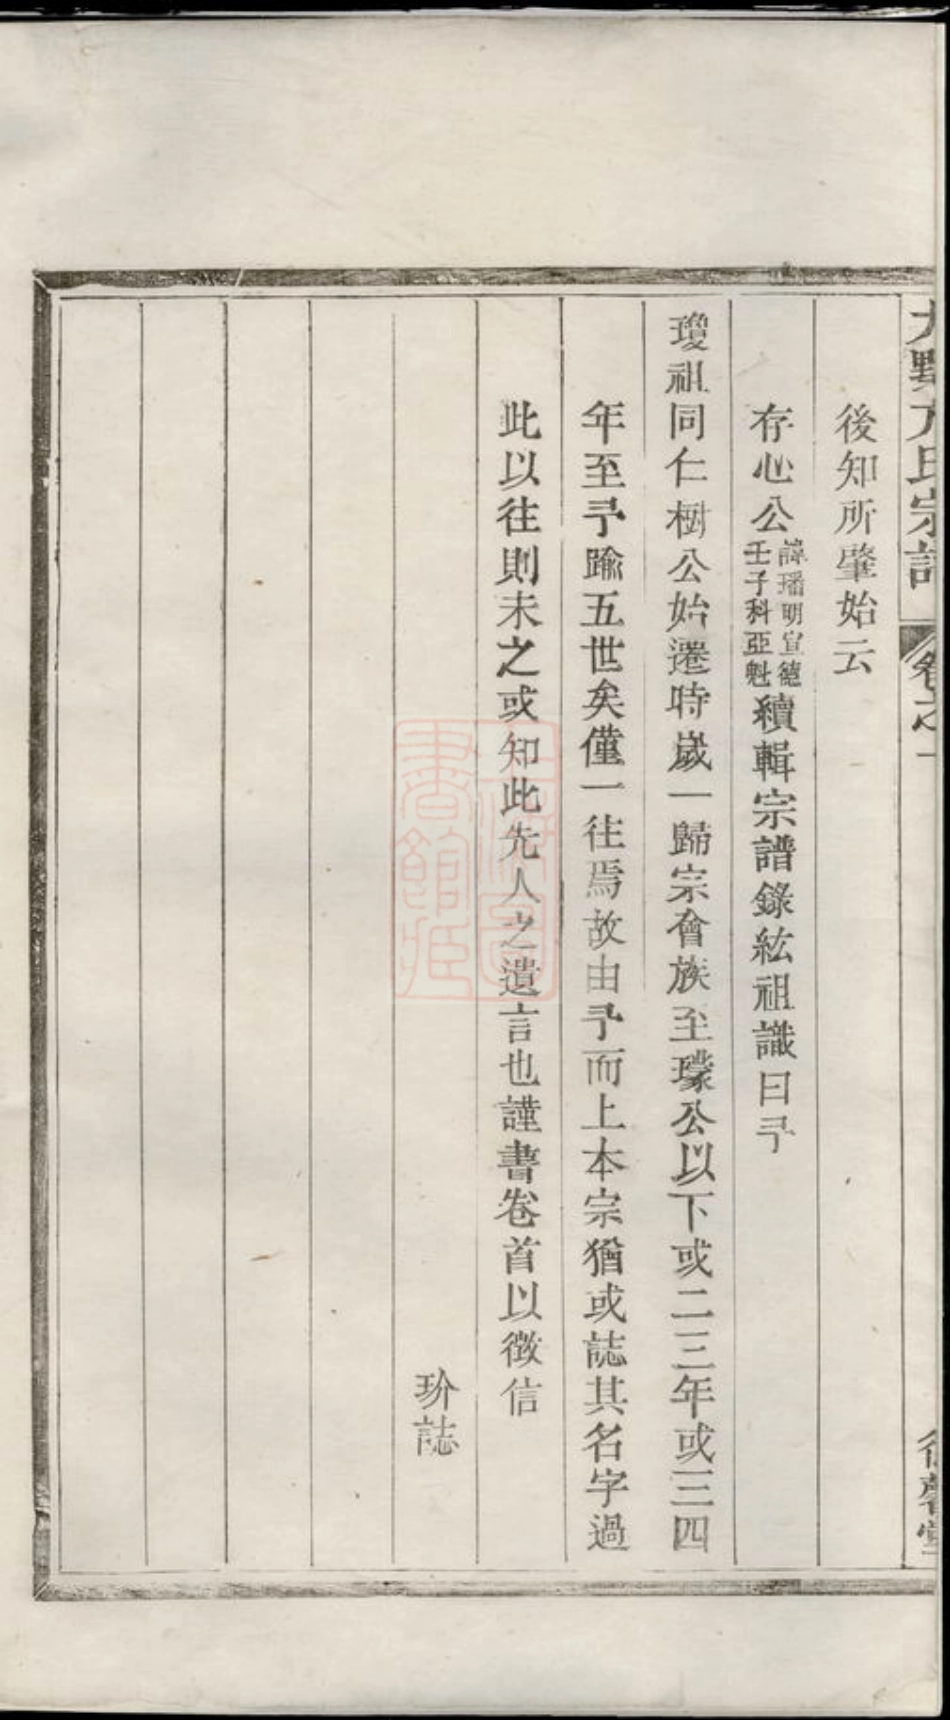 方氏宗譜
卷之一
德馨堂
後知所肇始云
存心公諱璠明宣德壬子科亞魁續輯宗譜錄紘祖識曰予
瓊祖同仁樹公始遷時歲一歸宗會族至璩公以下或二三年或三四
年至予踰五世矣僅一往焉故由予而上本宗猶或誌其名字過
此以往則未之或知此先人之遺言也謹書卷首以徵信
玠誌
上海圖書館藏